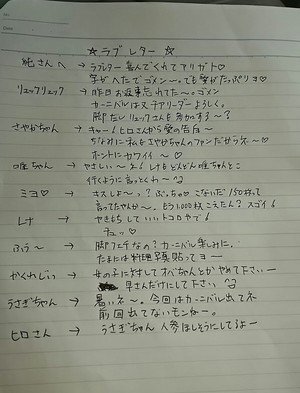 ☆ラブレター☆
純さんへ → ラブレター喜んでくれてアリガト♡
字がヘタでゴメン〜。でも愛がたっぷり♡
リュックリュック → 昨日お返事忘れてた〜。ゴメン
カーニバルはチアリーダーよろしく。
脚だしリュックさんを する〜?
さやかちゃん → キャー!ヒロさんから愛の告白〜
ちなみに私もさやかちゃんのファンだから ネ〜♡
ホントにカワイイ 〜♡
唯ちゃん → やさしい〜ネ!Kもどんどん唯ちゃんとこ
行くように言っとくわ〜
ミヨ♡ → チュしよ〜っ?ぶっちゅ♡こないだ150枚って
言ってたやんか〜。もう1,000枚こえたん?スゴイ!
レナ → やきもちしていいトコロやで!
チュッ♡
ふぅ〜 → 脚フェチなの?カーニバル楽しみに。
たまには料理写真貼ってヨー
かくれじぃ → 女の子に対してオバちゃんとか やめて下さいー
早さんだけにして下さい
うさぎちゃん → 暑いネ〜。今回はカーニバル出てネ
前回出てないモンなー。
ヒロさん → うさぎちゃん人参ほしそうにしてるよー